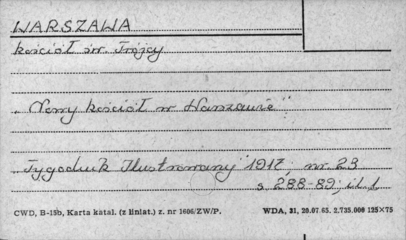 WARSZAWA
kościół św. Trójcy
"Nowy kościół w Warszawie"
"Tygodnik Ilustrowany" 1917, nr. 23
s. 288-89, il. 1
CWD, B-15b, Karta katal. (z liniat.) z. nr 1606/ZW/P. WDA, 31, 20.07.65. 2.735.000 125×75